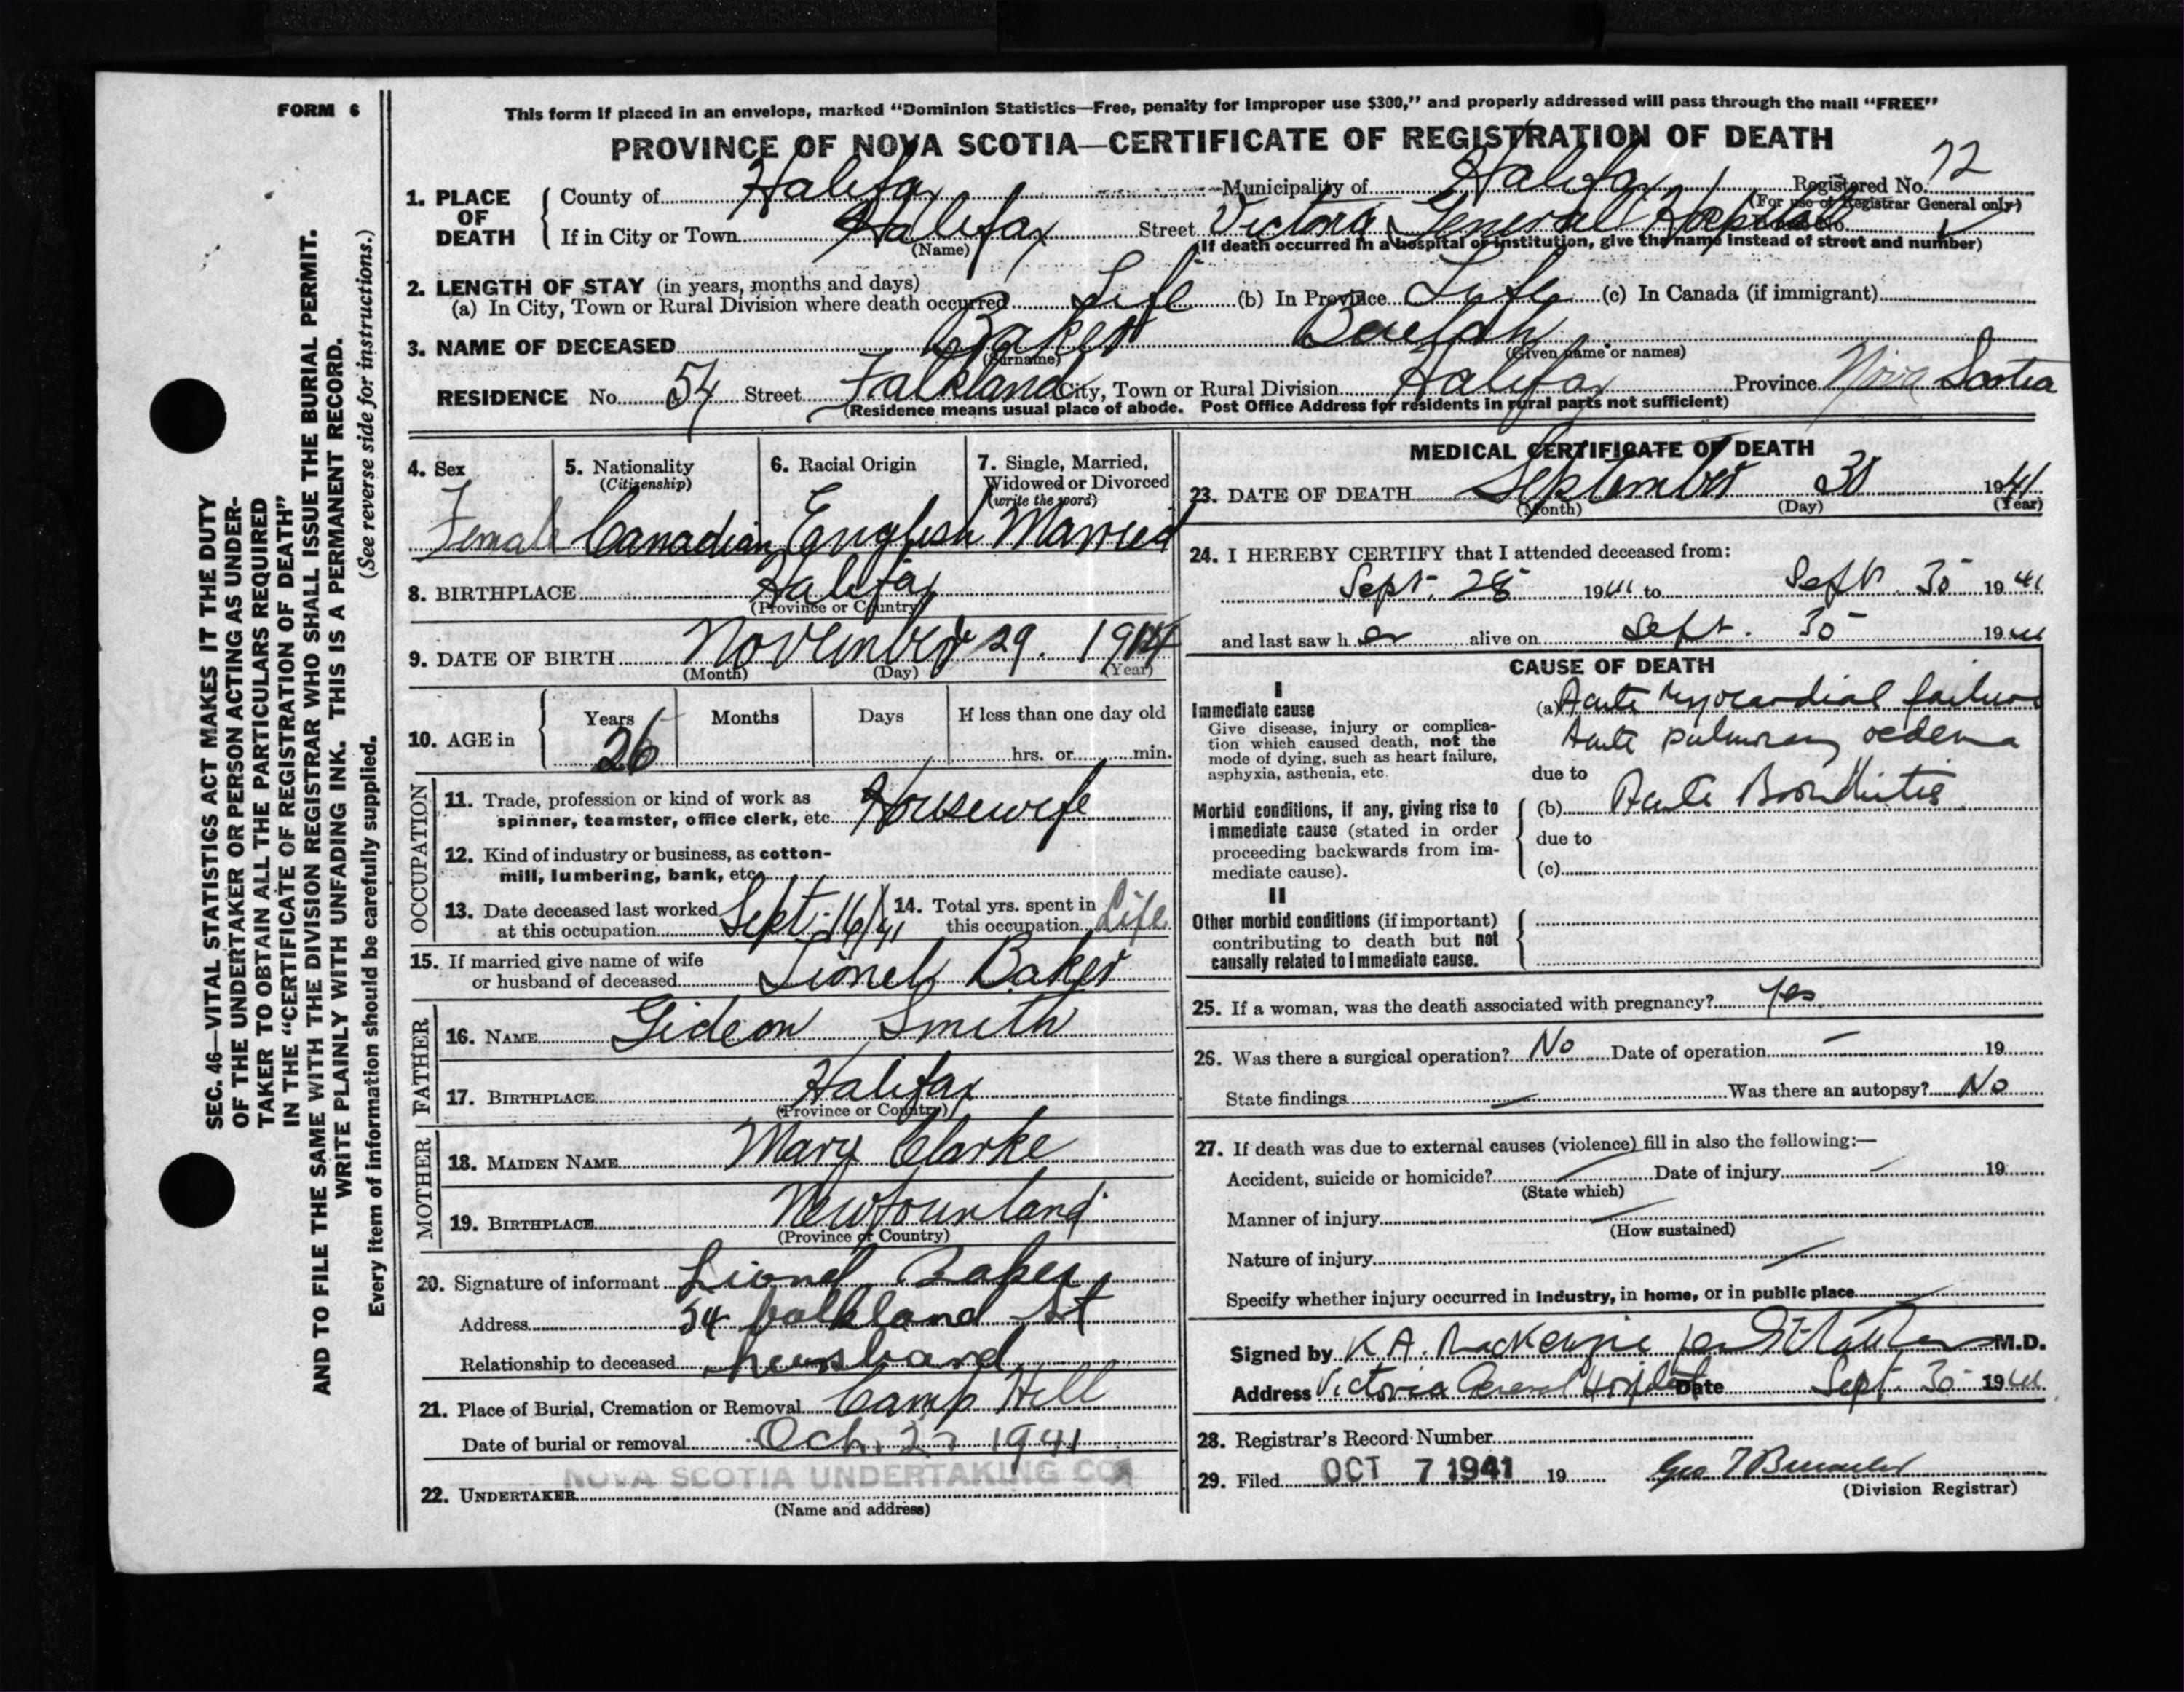 FORM 6
SEC. 46—VITAL STATISTICS ACT MAKES IT THE DUTY
OF THE UNDERTAKER OR PERSON ACTING AS UNDER-
TAKER TO OBTAIN ALL THE PARTICULARS REQUIRED
IN THE "CERTIFICATE OF REGISTRATION OF DEATH"
AND TO FILE THE SAME WITH THE DIVISION REGISTRAR WHO SHALL ISSUE THE BURIAL PERMIT.
WRITE PLAINLY WITH UNFADING INK. THIS IS A PERMANENT RECORD.
(See reverse side for instructions.)
Every item of information should be carefully supplied.
This form if placed in an envelope, marked "Dominion Statistics—Free, penalty for improper use $300," and properly addressed will pass through the mail "FREE"
PROVINCE OF NOVA SCOTIA—CERTIFICATE OF REGISTRATION OF DEATH
1. PLACE OF DEATH County of Halifax Municipality of Halifax Registered No. 72
(For use of Registrar General only)
If in City or Town Halifax Street Victoria General Hospital
(Name) (If death occurred in a hospital or institution, give the name instead of street and number)
2. LENGTH OF STAY (in years, months and days)
(a) In City, Town or Rural Division where death occurred Life (b) In Province Life (c) In Canada (if immigrant)
3. NAME OF DECEASED Baker Beulah
(Surname) (Given name or names)
RESIDENCE No. 54 Street Falkland City, Town or Rural Division Halifax Province Nova Scotia
(Residence means usual place of abode. Post Office Address for residents in rural parts not sufficient)
4. Sex 5. Nationality (Citizenship) 6. Racial Origin 7. Single, Married, Widowed or Divorced (write the word)
Female Canadian English Married
8. BIRTHPLACE Halifax
(Province or Country)
9. DATE OF BIRTH November 29. 1914
(Month) (Day) (Year)
10. AGE in Years Months Days If less than one day old
26 hrs. or min.
OCCUPATION
11. Trade, profession or kind of work as
spinner, teamster, office clerk, etc. Housewife
12. Kind of industry or business, as cotton-
mill, lumbering, bank, etc.
13. Date deceased last worked at this occupation Sept-16/41 14. Total yrs. spent in this occupation Life
15. If married give name of wife
or husband of deceased Lionel Baker
FATHER
16. NAME Gideon Smith
17. BIRTHPLACE Halifax
(Province or Country)
MOTHER
18. MAIDEN NAME Mary Clarke
19. BIRTHPLACE Newfounland
(Province or Country)
20. Signature of informant Lionel Baker
Address 54 Falkland St
Relationship to deceased husband
21. Place of Burial, Cremation or Removal Camp Hill
Date of burial or removal Oct. 2 1941
NOVA SCOTIA UNDERTAKING CO
22. UNDERTAKER
(Name and address)
MEDICAL CERTIFICATE OF DEATH
23. DATE OF DEATH September 30 1941
(Month) (Day) (Year)
24. I HEREBY CERTIFY that I attended deceased from:
Sept. 28 1941 to Sept. 30 1941
and last saw her alive on Sept. 30 1941
CAUSE OF DEATH
I
Immediate cause
Give disease, injury or complica-
tion which caused death, not the
mode of dying, such as heart failure,
asphyxia, asthenia, etc.
(a) Acute myocardial failure
Acute pulmonary oedema
due to
Morbid conditions, if any, giving rise to
immediate cause (stated in order
proceeding backwards from im-
mediate cause).
(b) Acute Bronchitis
due to
(c)
II
Other morbid conditions (if important)
contributing to death but not
causally related to immediate cause.
25. If a woman, was the death associated with pregnancy? Yes
26. Was there a surgical operation? No Date of operation — 19
State findings — Was there an autopsy? No
27. If death was due to external causes (violence) fill in also the following:—
Accident, suicide or homicide? Date of injury 19
(State which)
Manner of injury
(How sustained)
Nature of injury
Specify whether injury occurred in industry, in home, or in public place
Signed by K A. MacKenzie per M.D.
Address Victoria General Hospital Date Sept. 30 1941
28. Registrar's Record Number
29. Filed OCT 7 1941 19 Geo
(Division Registrar)